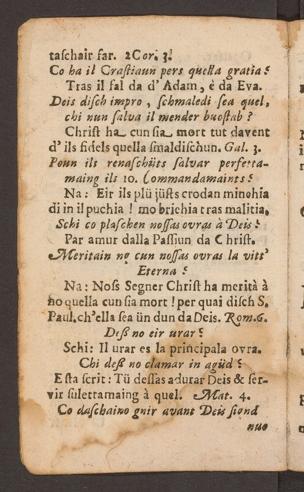 taschair far. 2Cor. 3!
Co ha il Crastiaun pers quella gratia?
Tras il fal da d' Adam, è da Eva.
Deis disch impro, schmaledi sea quel,
chi nun salva il mender buostab?
Christ ha cun sia mort tut davent
d' ils fidels quella smaldischun. Gal. 3.
Poun ils renaschüts salvar perfetta-
maing ils 10. Commandamaints?
Na: Eir ils plü jüsts crodan minchia
di in il puchia! mo brichia tras malitia.
Schi co plaschen nossas ovras à Deis?
Par amur dalla Passiun da Christ.
Meritain no cun nossas ovras la vitt'
Eterna?
Na: Noss Segner Christ ha merità à
no quella cun sia mort! per quai disch S.
Paul. ch'ella sea ün dun da Deis. Rom. 6.
Dess no eir urar?
Schi: Il urar es la principala ovra.
Chi dess no clamar in agüd?
Esta scrit: Tü dessas adurar Deis & ser-
vir sulettamaing à quel. Mat. 4.
Co daschaino gnir avant Deis siond
nuo